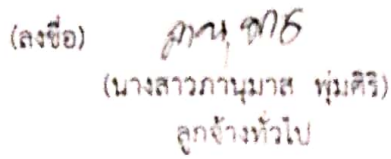 (ลงชื่อ) ภานุมาส
(นางสาวภานุมาส พุ่มศิริ)
ลูกจ้างทั่วไป